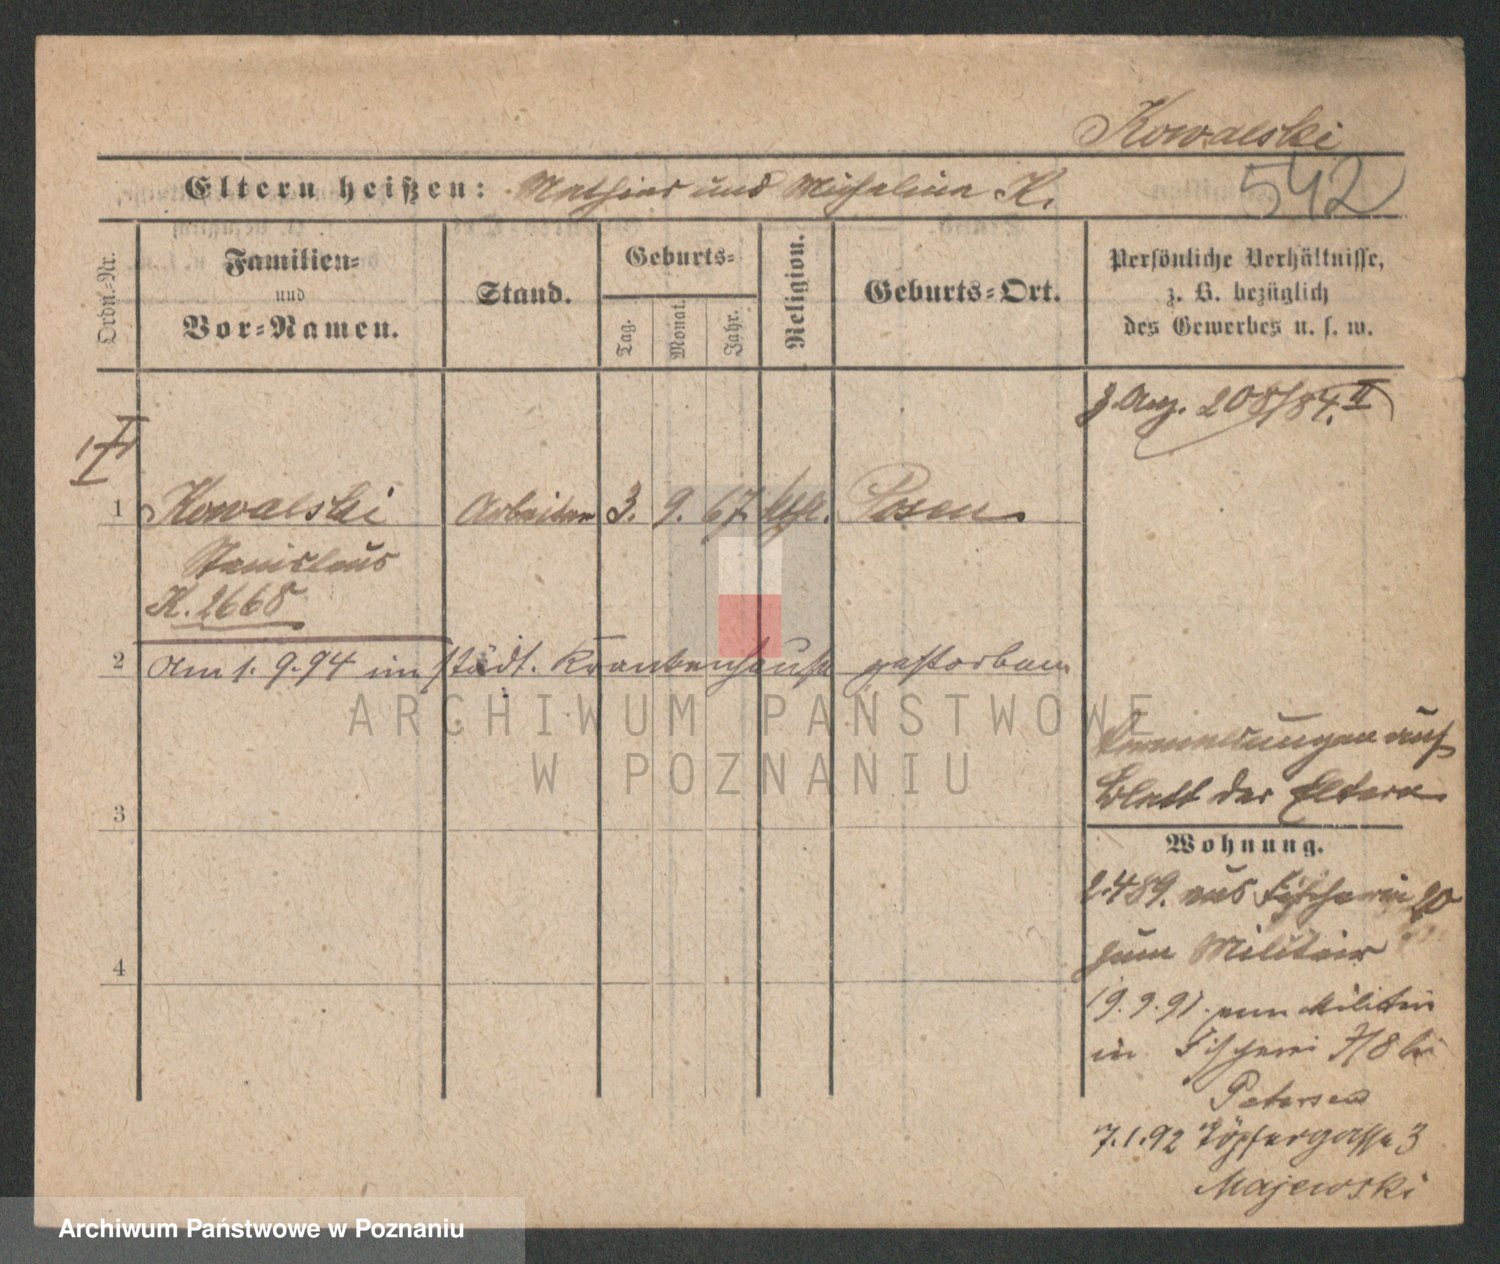 Kowalski
542
Eltern heißen: Mathias und Michalina K.
Ordn.-Nr.
Familien- und Vor-Namen.
Stand.
Geburts-
Tag.
Monat.
Jahr.
Religion.
Geburts-Ort.
Persönliche Verhältnisse,
z. B. bezüglich
des Gewerbes u. s. w.
208/84. II
1 Kowalski Arbeiter 3. 9. 67. kth. Posen
Stanislaus
K. 2668
2 Am 1. 9. 94 im städt. Krankenhause gestorben
ARCHIWUM PAŃSTWOWE
W POZNANIU
auf
Blatt der Eltern
3
Wohnung.
2.4 89. aus Fischerei 20
zum Militair
4
19.9.91. vom Militair
in Fischerei 7/8 bei
Petersen
7.1.92 Töpfergasse 3
Majewski
Archiwum Państwowe w Poznaniu